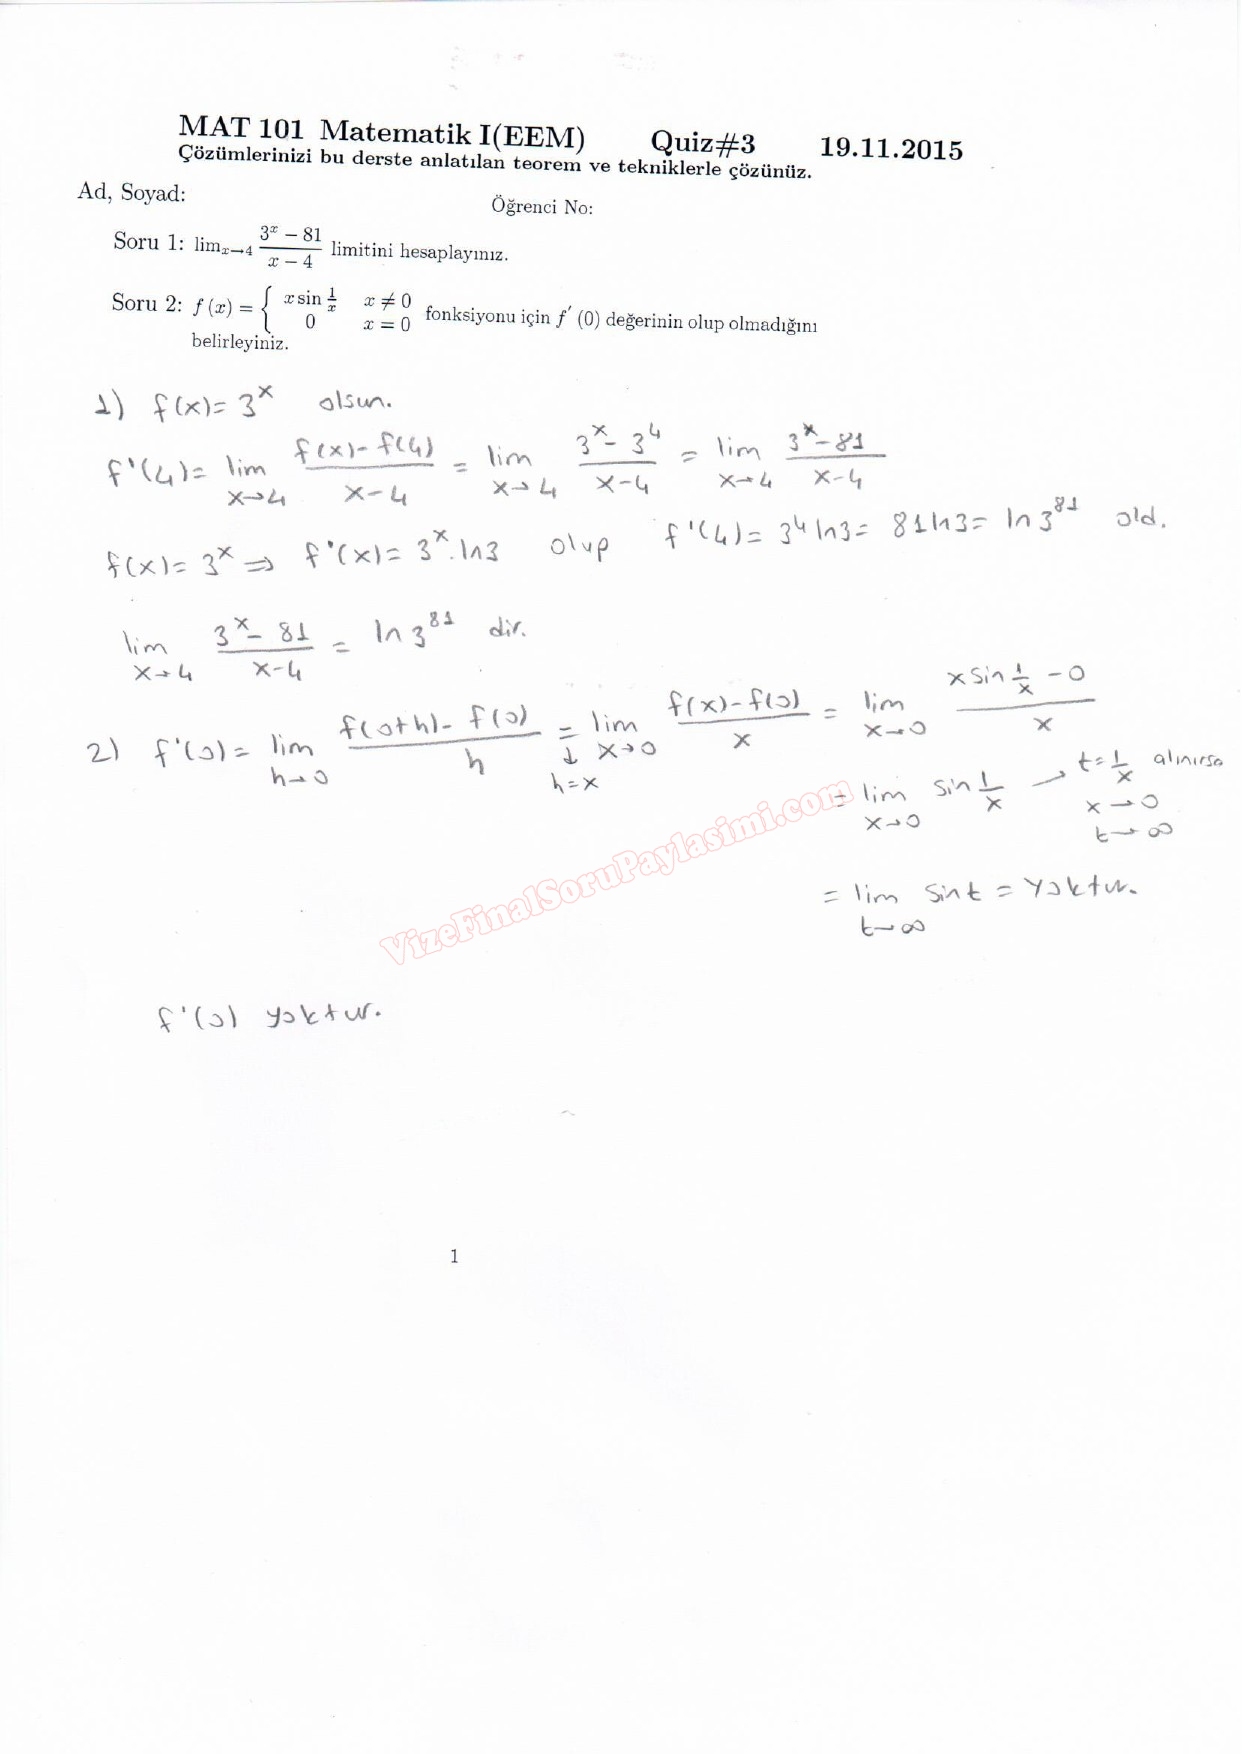 MAT 101 Matematik I(EEM) Quiz#3 19.11.2015
Çözümlerinizi bu derste anlatılan teorem ve tekniklerle çözünüz.
Ad, Soyad: Öğrenci No:
Soru 1: lim_{x→4} (3^x − 81)/(x − 4) limitini hesaplayınız.
Soru 2: f (x) = { x sin 1/x x ≠ 0
0 x = 0 fonksiyonu için f′ (0) değerinin olup olmadığını
belirleyiniz.
1) f(x)= 3^x olsun.
f'(4)= lim_{x→4} (f(x)-f(4))/(x-4) = lim_{x→4} (3^x-3^4)/(x-4) = lim_{x→4} (3^x-81)/(x-4)
f(x)= 3^x ⇒ f'(x)= 3^x.ln3 olup f'(4)= 3^4 ln3= 81ln3= ln3^81 old.
lim_{x→4} (3^x-81)/(x-4) = ln3^81 dir.
2) f'(0)= lim_{h→0} (f(0+h)-f(0))/h = lim_{x→0} (f(x)-f(0))/x = lim_{x→0} (x sin 1/x -0)/x
↓
h=x
= lim_{x→0} sin 1/x → t=1/x alınırsa
x→0
t→∞
= lim_{t→∞} sint = yoktur.
VizeFinalSoruPaylasimi.com
f'(0) yoktur.
1